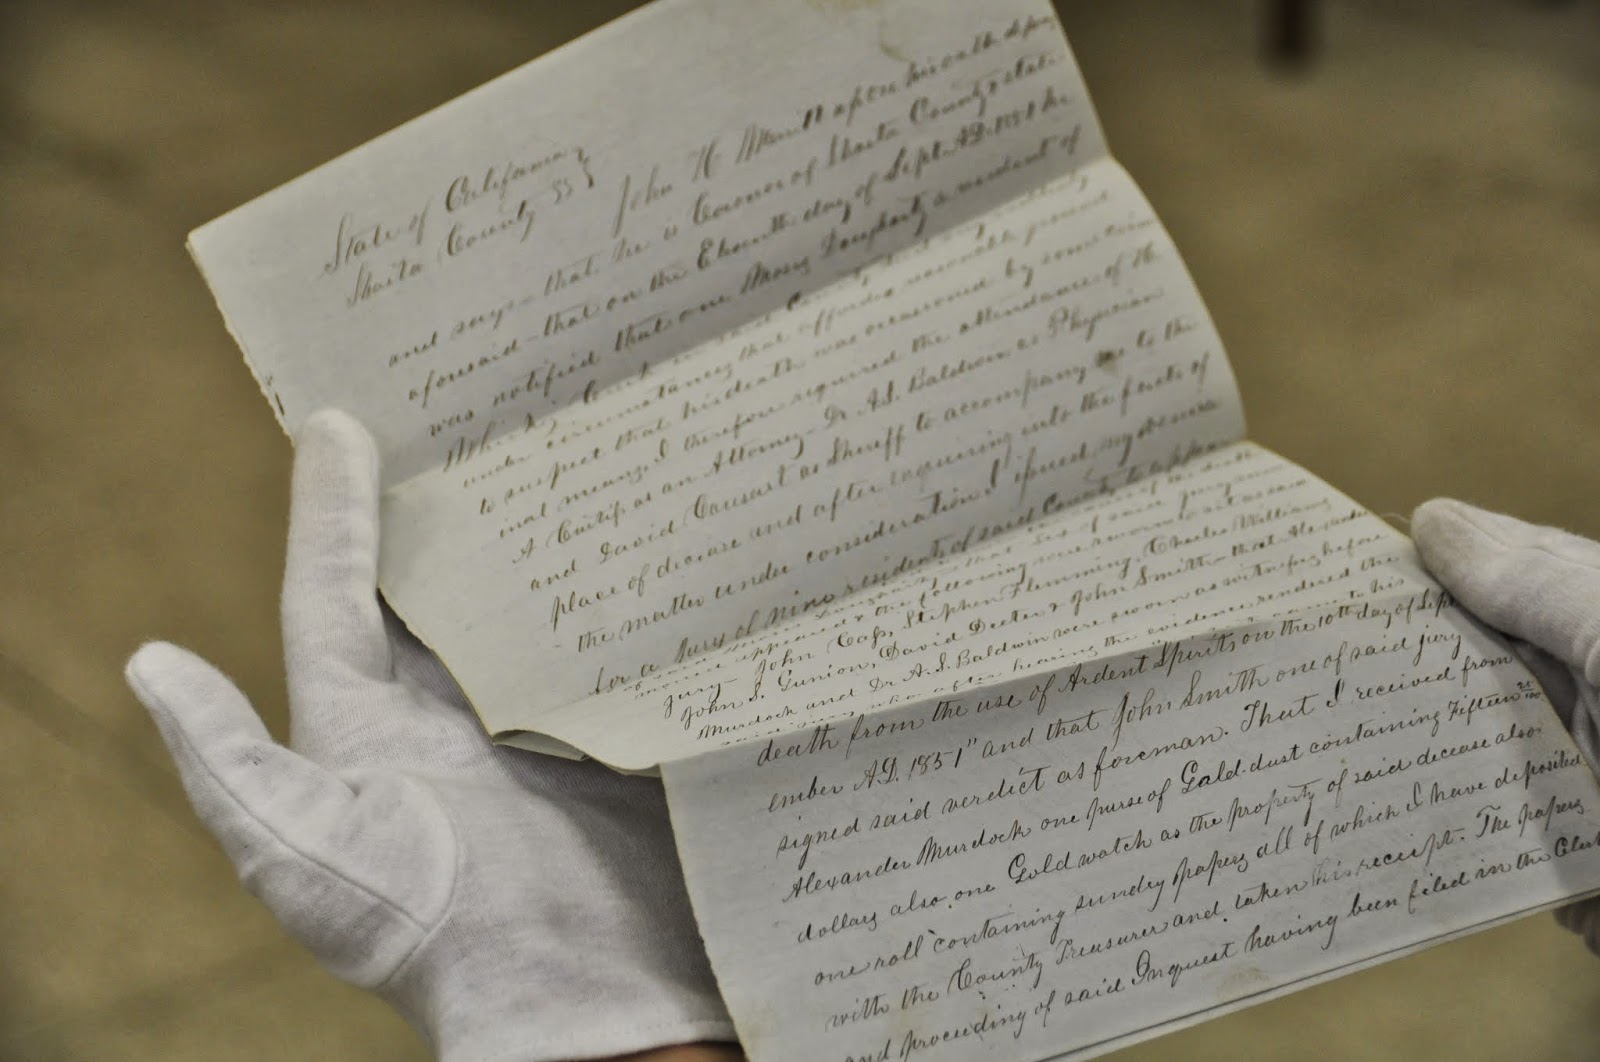 State of California
Shasta County SS
John H Merritt upon his oath
and says - that he is Coroner of Shasta County & state
aforesaid - that on the Eleventh day of Sept. A.D. 1851 he
was notified that one Moses Dougherty a resident of
Whiskey Creek in said County
under circumstances that affordes reasonable ground
to suspect that his death was occasioned by some crim
inal means, I therefore required the attendance of
as an Attorney - Dr A.S. Baldwin as Physician
and David as Sheriff to accompany me to the
place of decease and after enquiring into the facts of
the matter under consideration I issued my
for a jury of nine residents of said County to appear
that six of said
appeared & the following were sworn to act as
jury - John Cass, Stephen Flemming, Charles Williams
John S. Gunion, David Deeter & John Smith - that Alexander
Murdock and Dr A.S. Baldwin were sworn as witnesses before
said jury who after hearing the evidence rendered the
came to his
death from the use of Ardent Spirits on the 10th day of Sept
ember A.D. 1851" and that John Smith one of said jury
signed said verdict as foreman. That I received from
Alexander Murdock one purse of Gold-dust containing Fifteen
dollars also one Gold watch as the property of said decease also
one roll containing sundry papers all of which I have deposited
with the County Treasurer and taken his receipt. The papers
and proceeding of said Inquest having been filed in the Clerk